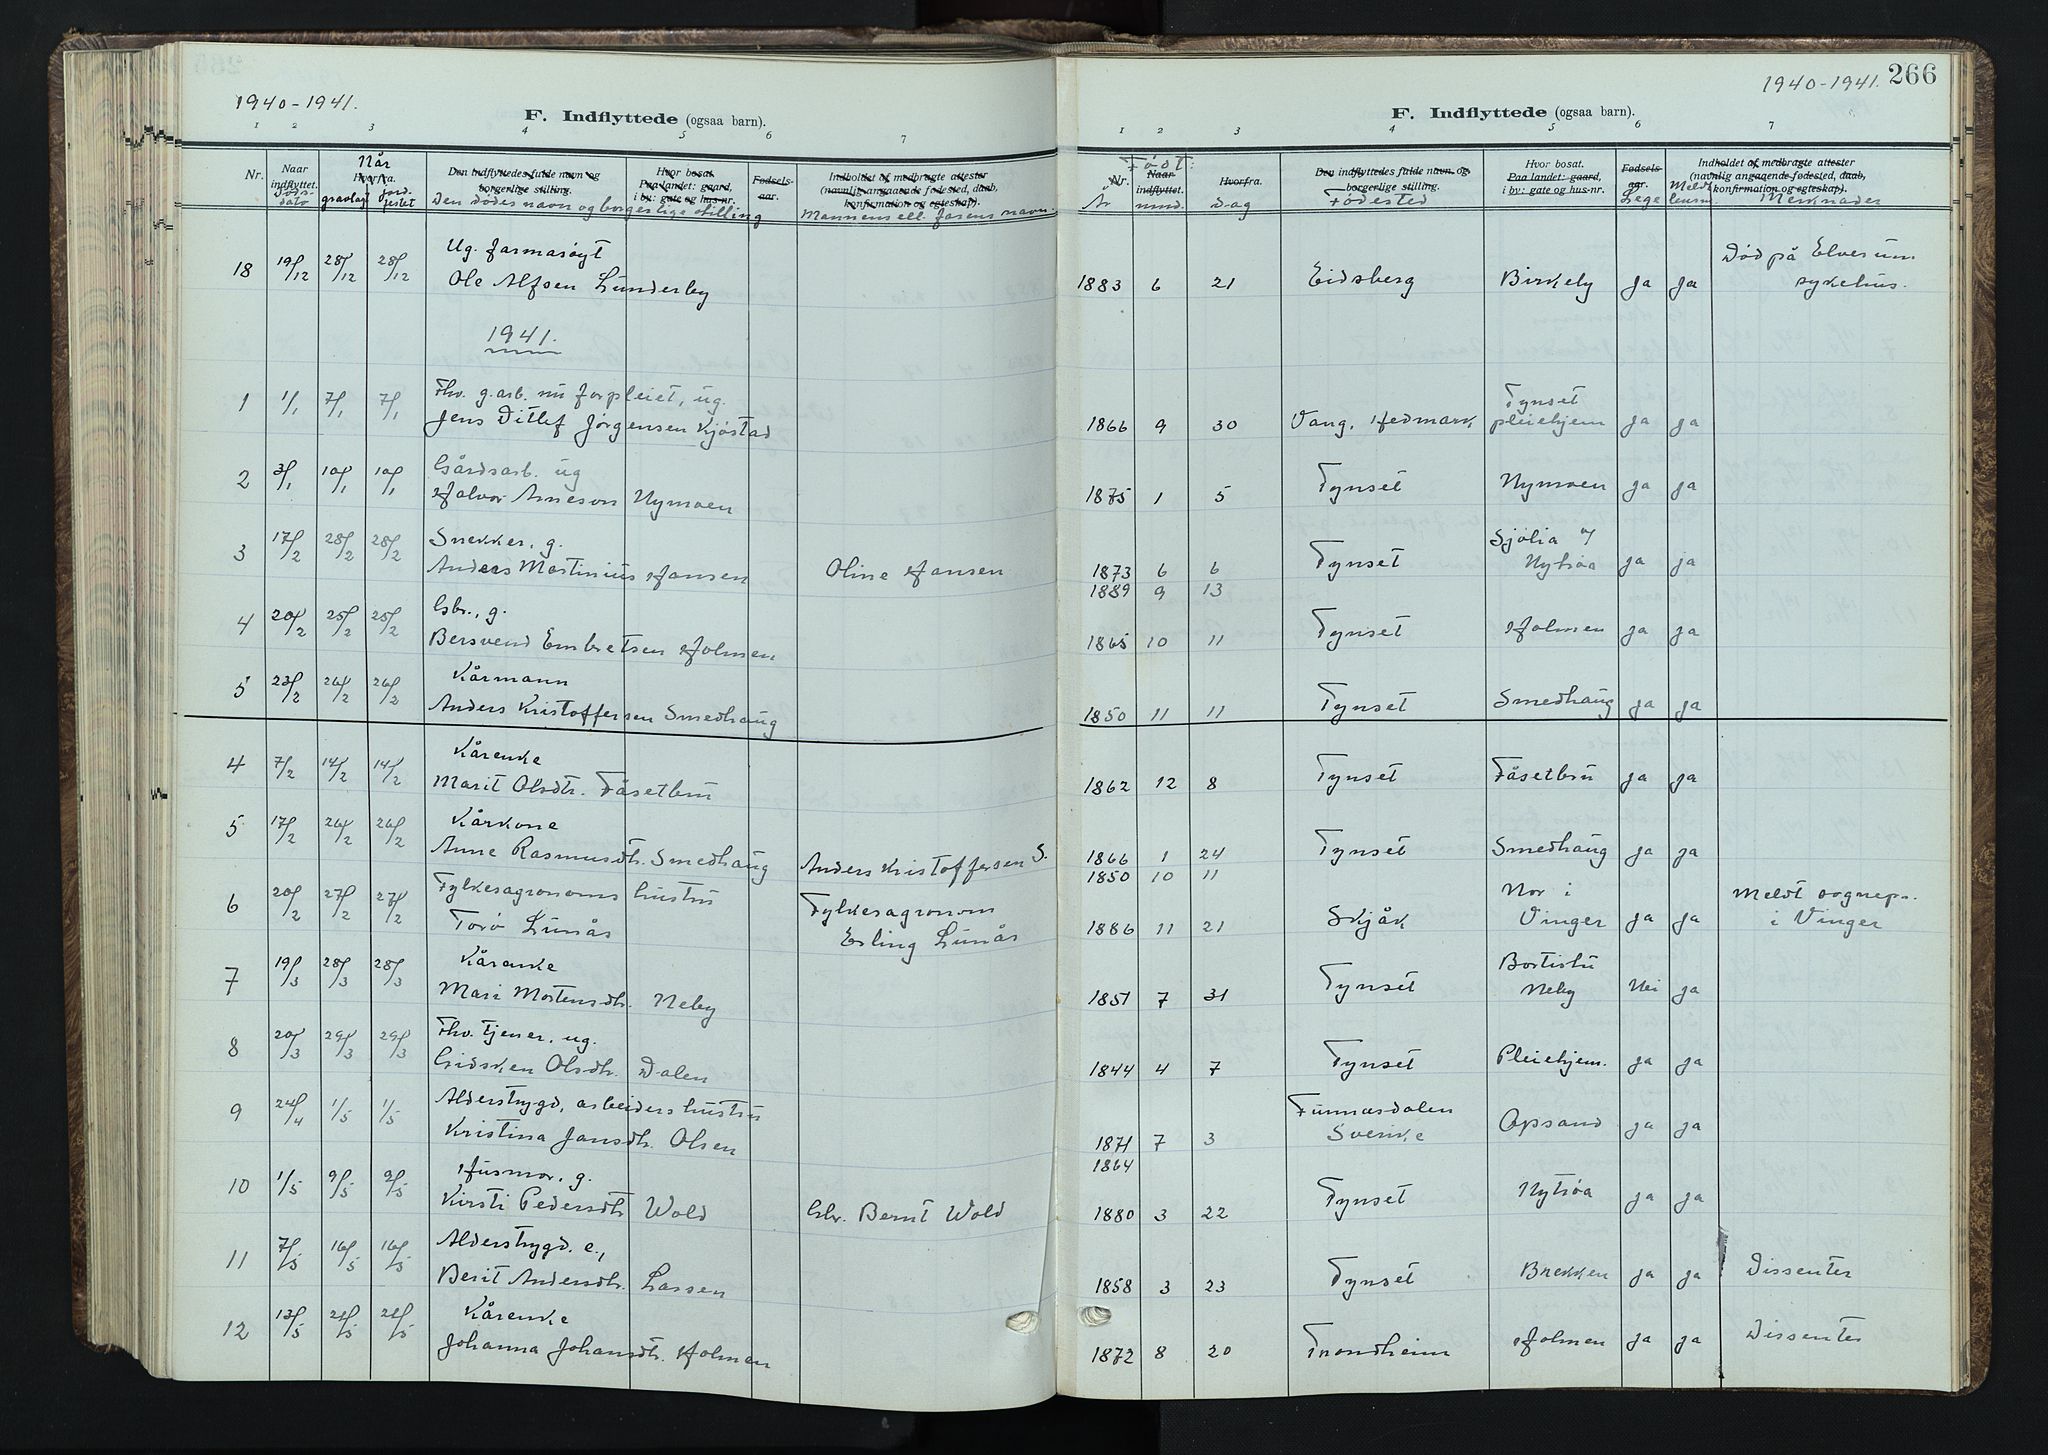 1940-1941.
F. Indflyttede (ogsaa barn).
1 2 3 4 5 6 7
Nr. Naar indflyttet. Hvorfra. Den indflyttedes fulde navn og borgerlige stilling. Hvor bosat. Paa landet: gaard, i by: gate og hus-nr. Fødsels-aar. Indholdet af medbragte attester (navnlig angaaende fødested, daab, konfirmation og egteskap).
Døds-dato Når gravlagt jord-festet Den dødes navn og borgerlige stilling Mannens ell. farens navn.
Ug. farmasøyt
18 19/12 28/12 28/12 Ole Alfsen Lunderby
1941.
Fhv. g.arb. nu forpleiet, ug.
1 1/1 7/1 7/1 Jens Ditlef Jørgensen Kjøstad
Gårdsarb. ug
2 3/1 10/1 10/1 Halvor Arneson Nymoen
Snekker, g.
3 17/2 28/2 28/2 Anders Martinius Hansen Oline Hansen
Gbr., g.
4 20/2 25/2 25/2 Bersvend Embretsen Holmen
Kårmann
5 23/2 26/2 26/2 Anders Kristoffersen Smedhaug
Kårenke
4 7/2 14/2 14/2 Marit Olsdtr. Fåsetbru
Kårkone
5 17/2 26/2 26/2 Anne Rasmusdtr. Smedhaug Anders Kristoffersen S.
Fylkesagronoms hustru Fylkesagronom
6 20/2 27/2 27/2 Torø Lunås Erling Lunås
Kårenke
7 19/3 28/3 28/3 Mari Mortensdtr. Neby
Fhv. tjener, ug.
8 20/3 29/3 29/3 Gidsken Olsdtr. Dalen
Alderstrygd, arbeiders hustru
9 24/4 1/5 1/5 Kristina Jansdtr. Olsen
Husmor, g.
10 1/5 9/5 9/5 Kirsti Pedersdtr Wold Gbr. Bernt Wold
Alderstrygd. e.,
11 7/5 16/5 16/5 Berit Andersdtr. Larsen
Kårenke
12 13/5 21/5 21/5 Johanna Johansdtr. Holmen
1940-1941. 266
F. Indflyttede (ogsaa barn).
1 2 3 4 5 6 7
Født:
Nr. Naar indflyttet. Hvorfra. Den indflyttedes fulde navn og borgerlige stilling. Hvor bosat. Paa landet: gaard, i by: gate og hus-nr. Fødsels-aar. Indholdet af medbragte attester (navnlig angaaende fødested, daab, konfirmation og egteskap).
År mnd. dag Fødested Lege Meldt lensm. Merknader
Død på Elverum
1883 6 21 Eidsberg Birkely ja ja sykehus.
Tynset
1866 9 30 Vang, Hedmark pleiehjem ja ja
1875 1 5 Tynset Nymoen ja ja
Sjølia
1873 6 6 Tynset Nytrøa ja ja
1889 9 13
1865 10 11 Tynset Holmen ja ja
1850 11 11 Tynset Smedhaug ja ja
1862 12 8 Tynset Fåsetbru ja ja
1866 1 24 Tynset Smedhaug ja ja
1850 10 11
Nor i Meldt sognepr.
1886 11 21 Skjåk Vinger ja ja i Vinger
Bortistu
1851 7 31 Tynset Neby Nei ja
1844 4 7 Tynset Pleiehjem. ja ja
Funnæsdalen
1871 7 3 Sverike Opsand ja ja
1864
1880 3 22 Tynset Nytrøa ja ja
1858 3 23 Tynset Brekken ja ja Dissenter
1872 8 20 Trondheim Holmen ja ja Dissenter